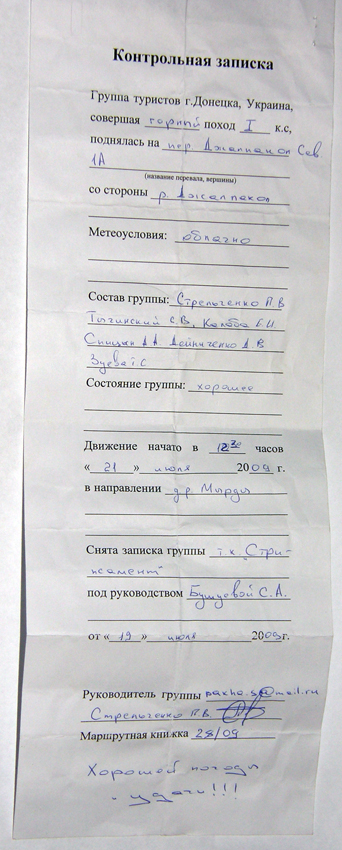 Контрольная записка
Группа туристов г.Донецка, Украина,
совершая горный поход I к.с,
поднялась на пер. Джалпакол Сев
1А
(название перевала, вершины)
со стороны р. Джалпакол
Метеоусловия: облачно
Состав группы: Стрельченко П.В
Тычинский С.В, Колоба Е.И.
Спицын А А Дейниченко А.В
Зуева т.С
Состояние группы: хорошее
Движение начато в 12 30 часов
« 21 » июля 2009 г.
в направлении д.р. Мырды
Снята записка группы т.к. "Стри-
жамент"
под руководством Бушуевой С.А.
от « 19 » июля 2009г.
Руководитель группы paxho.s@mail.ru
Стрельченко П.В.
Маршрутная книжка 28/09
Хорошей погоды
и удачи!!!